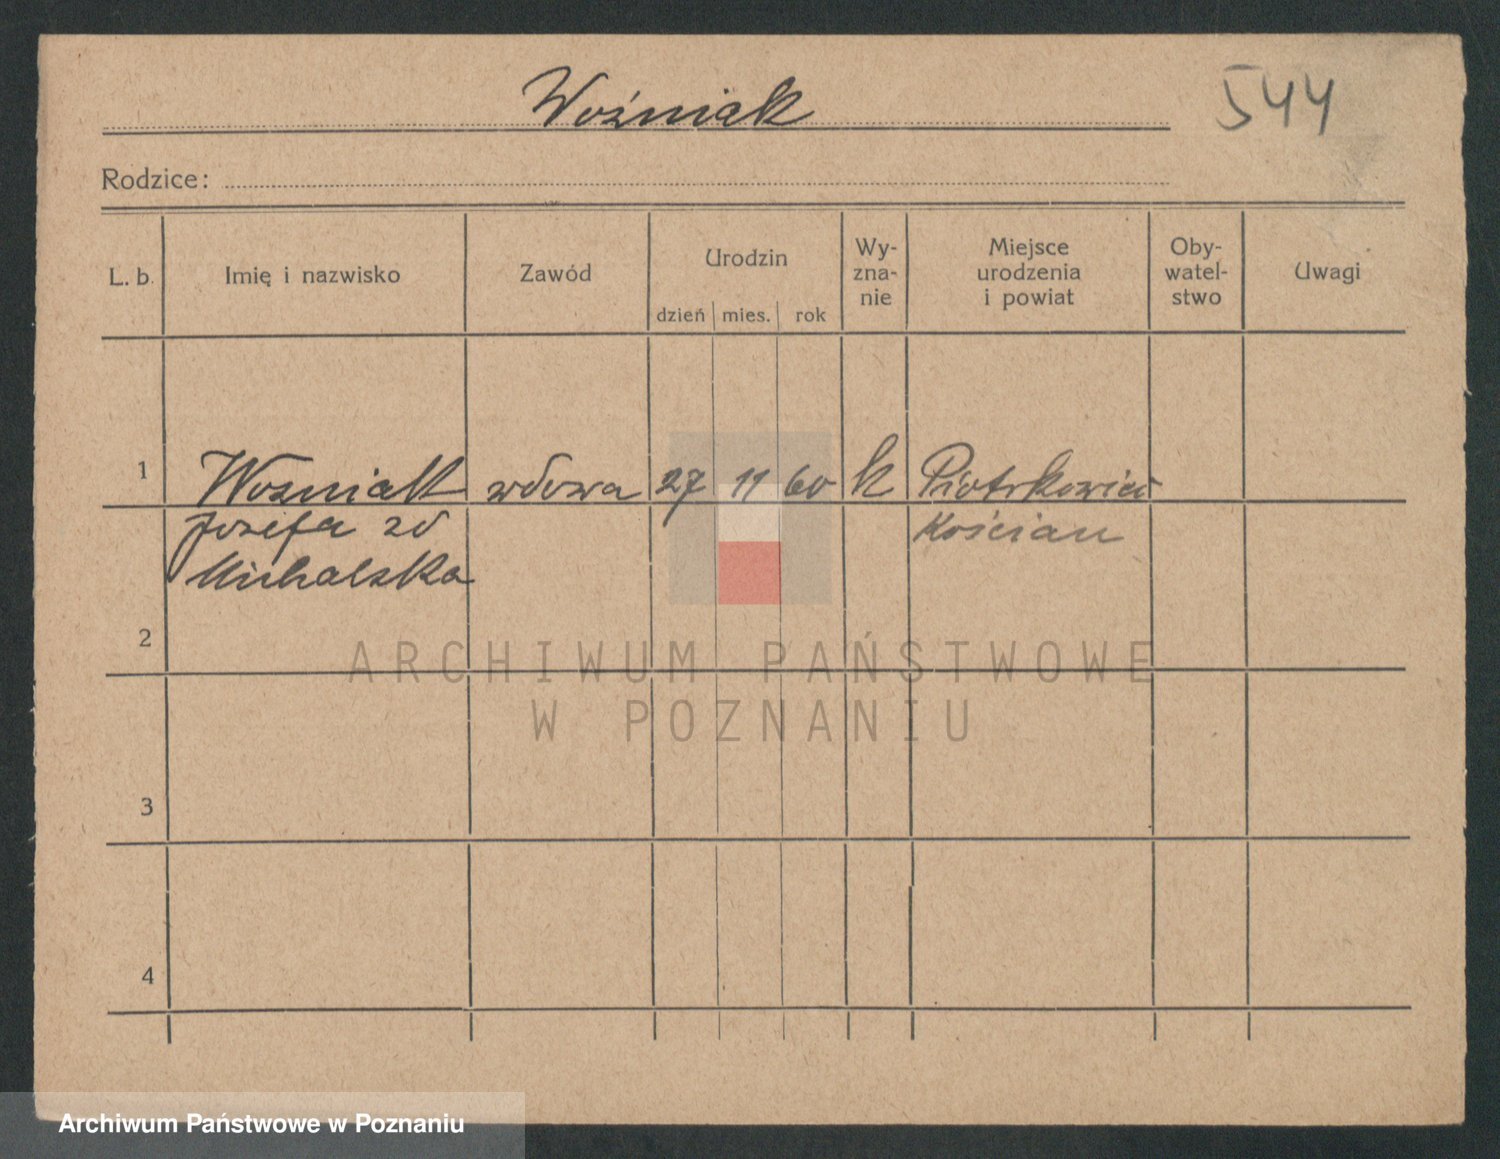 Woźniak
544
Rodzice:
L. b.
Imię i nazwisko
Zawód
Urodzin
dzień mies. rok
Wy-
zna-
nie
Miejsce
urodzenia
i powiat
Oby-
watel-
stwo
Uwagi
1 Wozniak wdowa 27 11 60 k Piotrkowice
Jozefa zd Kościan
Michalska
2
3
4
ARCHIWUM PAŃSTWOWE
W POZNANIU
Archiwum Państwowe w Poznaniu